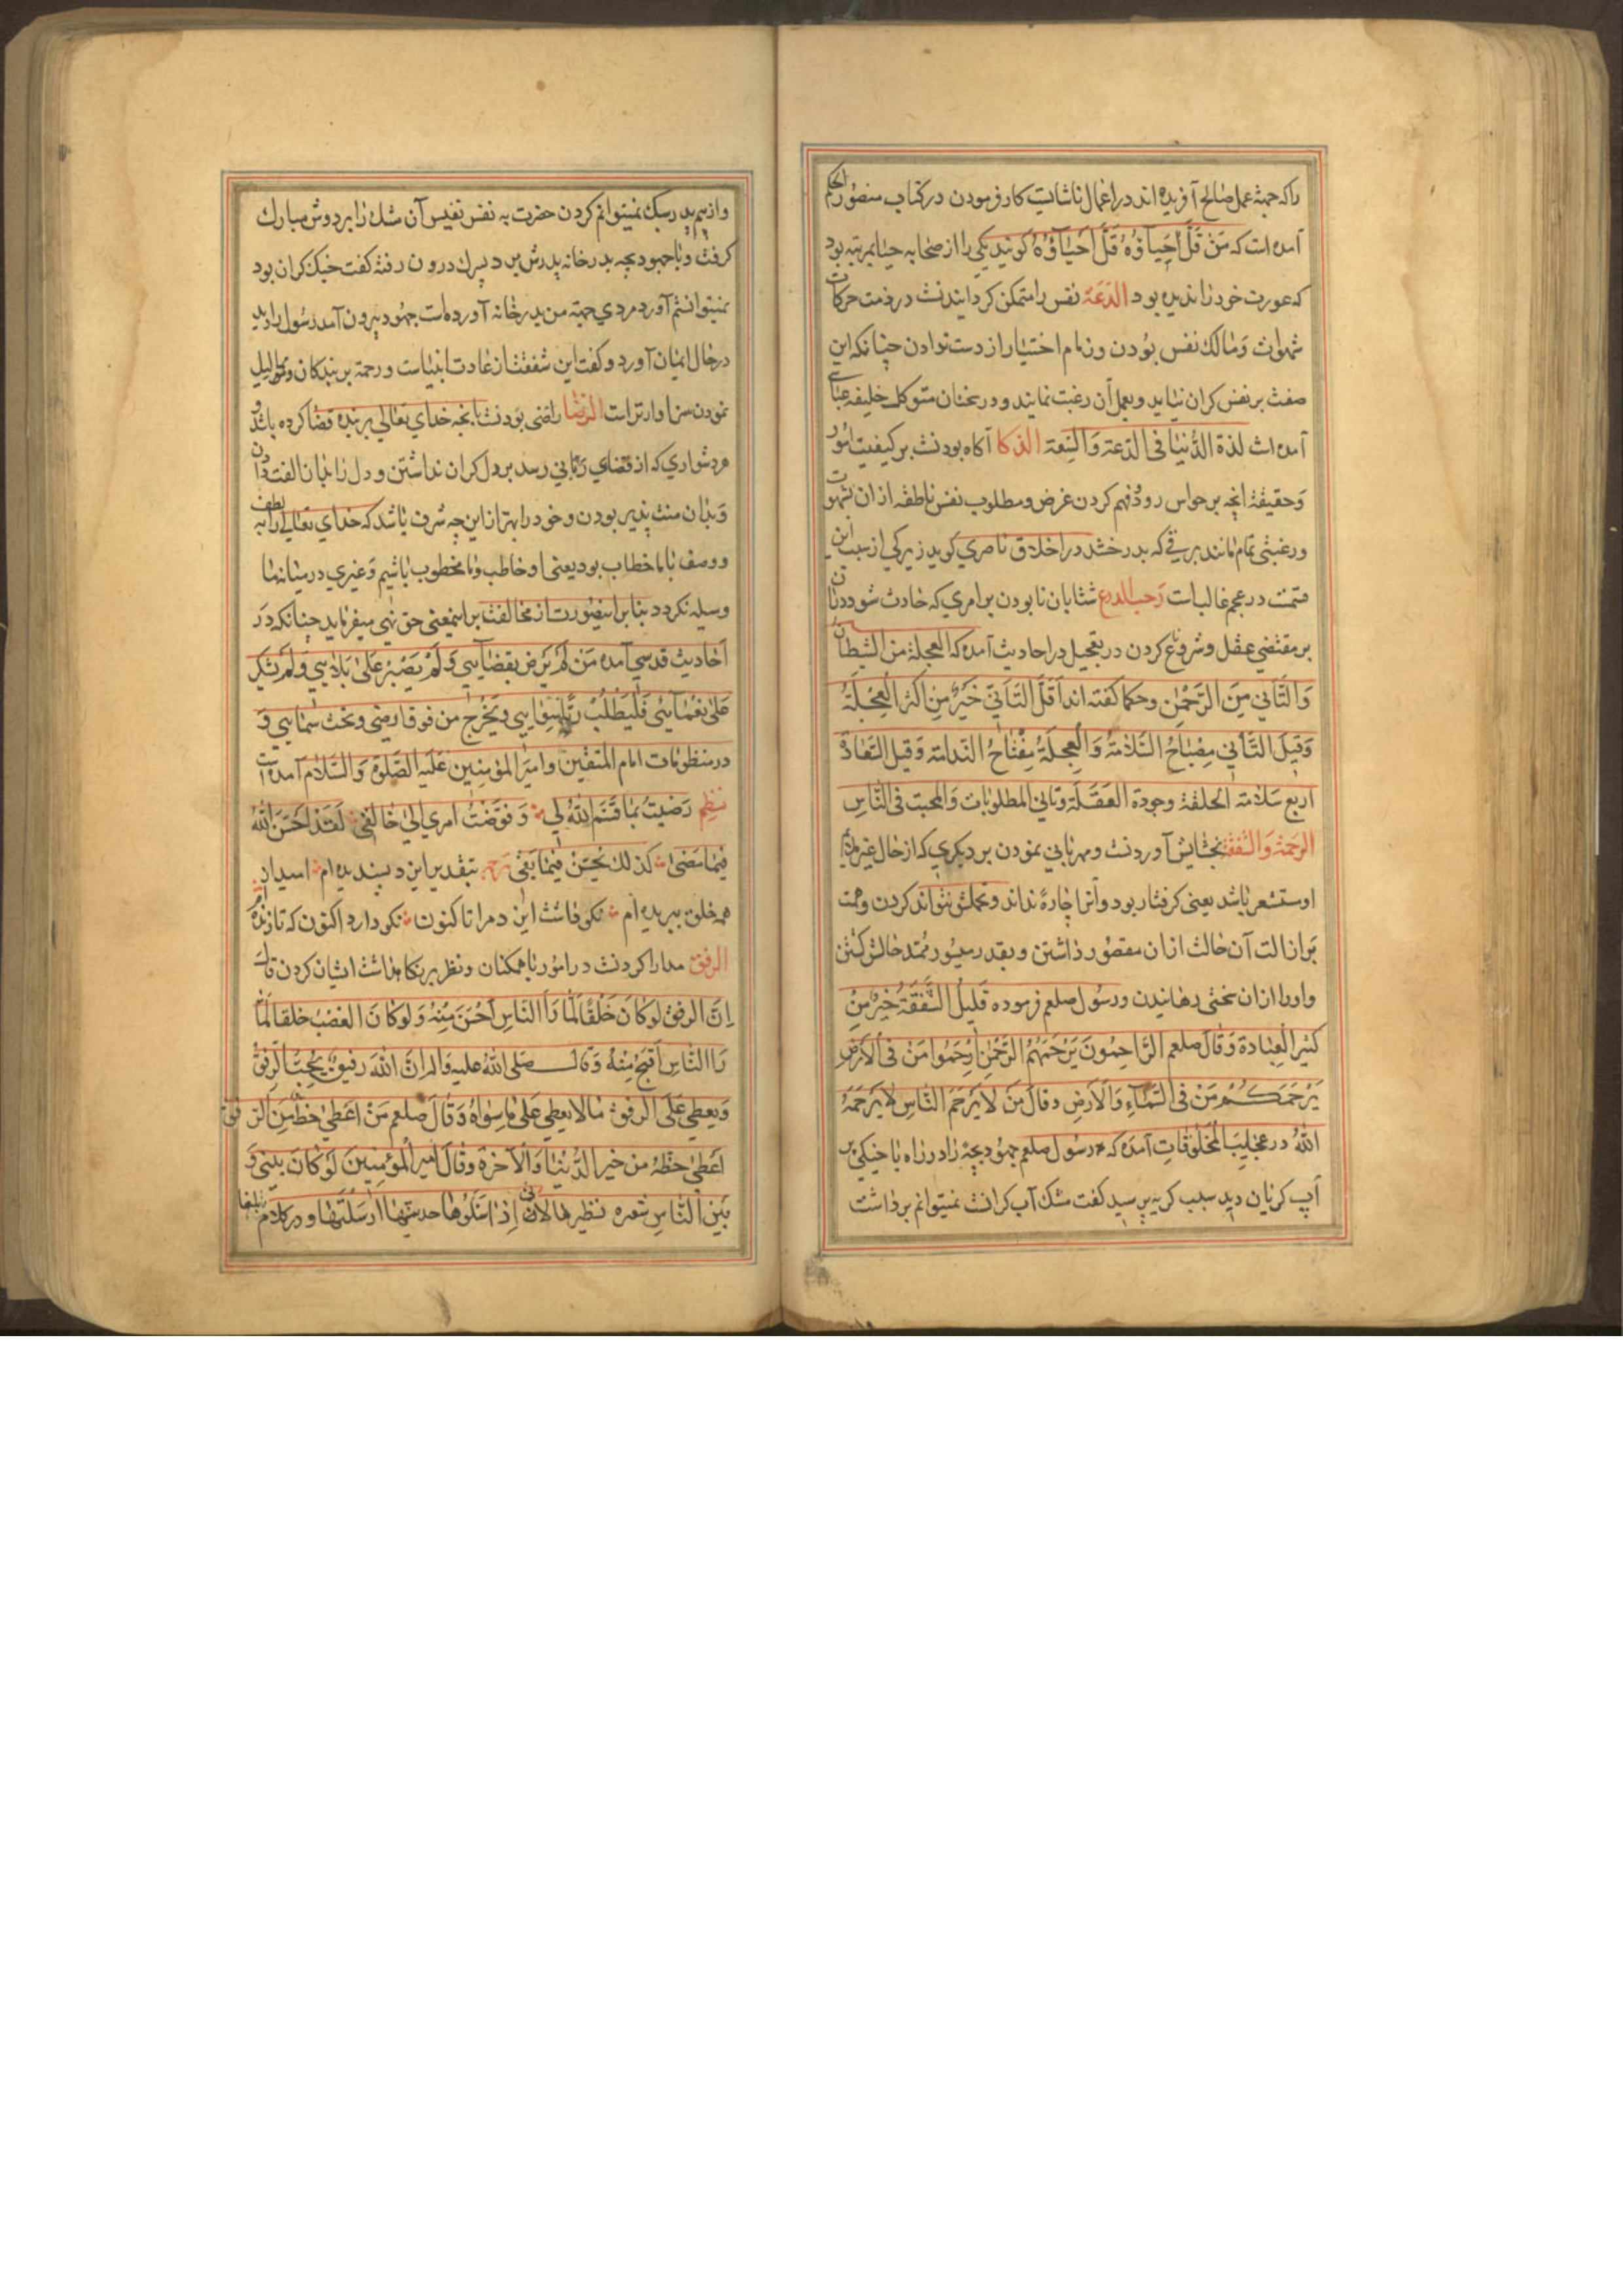 را که جهة عمل صالح آفریده اند در اعمال ناشایست کار فرمودن در کتاب منصور الحکم
آمده است که مَنْ قَلَّ حَیآؤُهُ قَلَّ اَحْیآؤُهُ گویند یکی را از صحابه حیا بمرتبه بود
که عورت خود را ندیده بود الدَعَة نفس را متمکن گردانیدنست در وقت حرکات
شهوات وَ مالک نفس بُودن و زمام اختیار از دست ندادن چنانکه این
صفت بر نفس گران نیاید و بعمل آن رغبت نماید و در سخنان متوکل خلیفه عباسی
آمده است لذة الدُّنیا فی الدَعة وَ السَّعة الذکا آگاه بودنست بر کیفیت امور
وَ حقیقة انچه بر حواس رود و فهم کردن غرض و مطلوب نفس ناطقه از ان بشهوت
و رغبتی تمام مانند برقی که بدرخشد در اخلاق ناصری گوید زیرکی از سبب این
قسمت در عجم غالبست رَحب الذرع شتابان نابودن بر امری که حادث شود دران
بر مقتضی عقل و شروع کردن در تعجیل در احادیث آمده که العجلة من الشیطان
وَ التَّانی مِنَ الرَّحْمٰن و حکما گفته اند اَقَلَّ التَّأَنّی خَیْرٌ مِن اَکثر العِجلَةُ
وَ قیلَ التَّأنی مِصْباحُ السَّلامَةُ وَ الْعِجلَةُ مِفْتاحُ النَّدامَة وَ قیل السَّعادة
اَربع سَلامَة الخلقة وجودة العَقل وَ تأنی المطلوبات وَ المحبت فی النّاسِ
الرَحمَة وَ الشَّفَقَة بخشایش آوردنست و مهربانی نمودن بر دیگری که از حال غیر ملایم
او مستشعر باشد یعنی گرفتار بود و آنرا چاره نداند و تحمّلش نتواند کردن و همت
بَر ازالت آن حالت ازان مقصُور داشتن و بقدر میسُور ممّد حالش گشتن
و اورا ازان سختی رهانیدن و رسُول صلعم فرموده قَلیلُ الشَّفَقَةِ خَیْرٌ مِنْ
کثیر الْعِبادة وَ قالَ صلعم الرَّاحِمُونَ یَرْحَمَهُمُ الرَّحْمٰنُ اِرْحَمُوا مَنْ فی الْاَرْضِ
یَرْحَمَکُم مَنْ فی السَّمآءِ وَ الْاَرضِ و قالَ مَنْ لا یَرْحَمُ النّاسَ لا یَرْحَمَهُ
اللّٰهُ در عجایِب المخلوقات آمَدَه که رسُول صلعم جهُود بچهٔ را در راه با خیکی پر
آب گریان دید سبب گریه پرسید گفت مشک آب گرانست نمیتوانم برداشت
و از بیم پدر سبک نمیتوانم کردن حضرت به نفس نفیس آن مشک را بر دوش مبارک
گرفت و با جهود بچه بدر خانه پدرش برد پسرک درون رفته گفت خیک گران بود
نمیتوانستم آورد مردی جهة من بدر خانه آورده است جهود بیرون آمد رسُول را دید
در حال ایمان آورد و گفت این شفقت از عادت انبیاست و رحمة بر بندگان
نمودن سزاوارتر است الرضا راضی بودنست بانچه خدای تعالی بر بنده قضا کرده باشد و
هر دشواری که از قضای ربّانی رسد بر دل گران نداشتن و دل را بدان الفت دادن
وَ بدان منت پذیر بودن و خود را بهتر ازاین چه شرف باشد که خدای تعالی را به لطف
و وصف با ما خطاب بود یعنی او خاطب و ما مخطوب باشیم وَ غیری در میانه ما
وسیله نگردد بنا بر اینصُورت از مخالفت بر اینمعنی حق نهی میفرماید چنانکه دَر
اَحادیث قدسی آمده مَن لَمْ یَرْض بقضآیی وَ لَمْ یَصْبِرْ عَلیٰ بَلایی وَ لَمْ یشکر
عَلیٰ نَعْمآیی فَلْیَطْلُبْ رَبّاً سِوایی وَ یَخْرُج من فوق ارضی وَ تحت سَمایی وَ
در منظومات امام المتقین و امیر المؤمنین عَلَیه الصَّلوة وَ السَّلام آمده است
نظم رَضیتُ بما قَسَم اللّٰهُ لی وَ فَوَّضتُ امری اِلیٰ خالِقی لَقَدْ اَحْسَنَ اللّٰهُ
فیما مَضیٰ کذلک یُحْسِنُ فیما بَقی ترجمه بتقدیر ایزد پسندیده ام امید از
همه خلق ببریده ام نکو داشت این دم مرا تا کنون نکو دارد اکنون که تا زنده ام
الرفق مدارا کردنست در امُور با همگنان و نظر بر نگاهداشت ایشان کردن قال
اِنَّ الرفق لَو کانَ خَلْقاً لَما رَأَ النّاس اَحْسَنَ مِنْهُ وَ لَو کانَ الغضب خلقا لَما
رَأ النّاس اَقبَحَ مِنْهُ وَ قالَ صَلی اللّٰهُ علیه و اله اِنَّ اللّٰهَ رَفیقٌ یُحِبُّ الرِّفْقَ
وَ یعطی عَلَی الرفق ما لا یعطی عَلیٰ ما سِواهُ وَ قالَ صلعم مَنْ اعطی حَظَّه مِنَ الرفق
اَعطیٰ حَظَّهُ من خیر الدُّنیا وَ الْآخرة وَ قالَ امیر المؤمنین لَو کانَ بینی وَ
بَیْنَ النّاس شعره نظیرها لِاَنّی اِذا امسکوها ارسلتها و در کلام بلغا